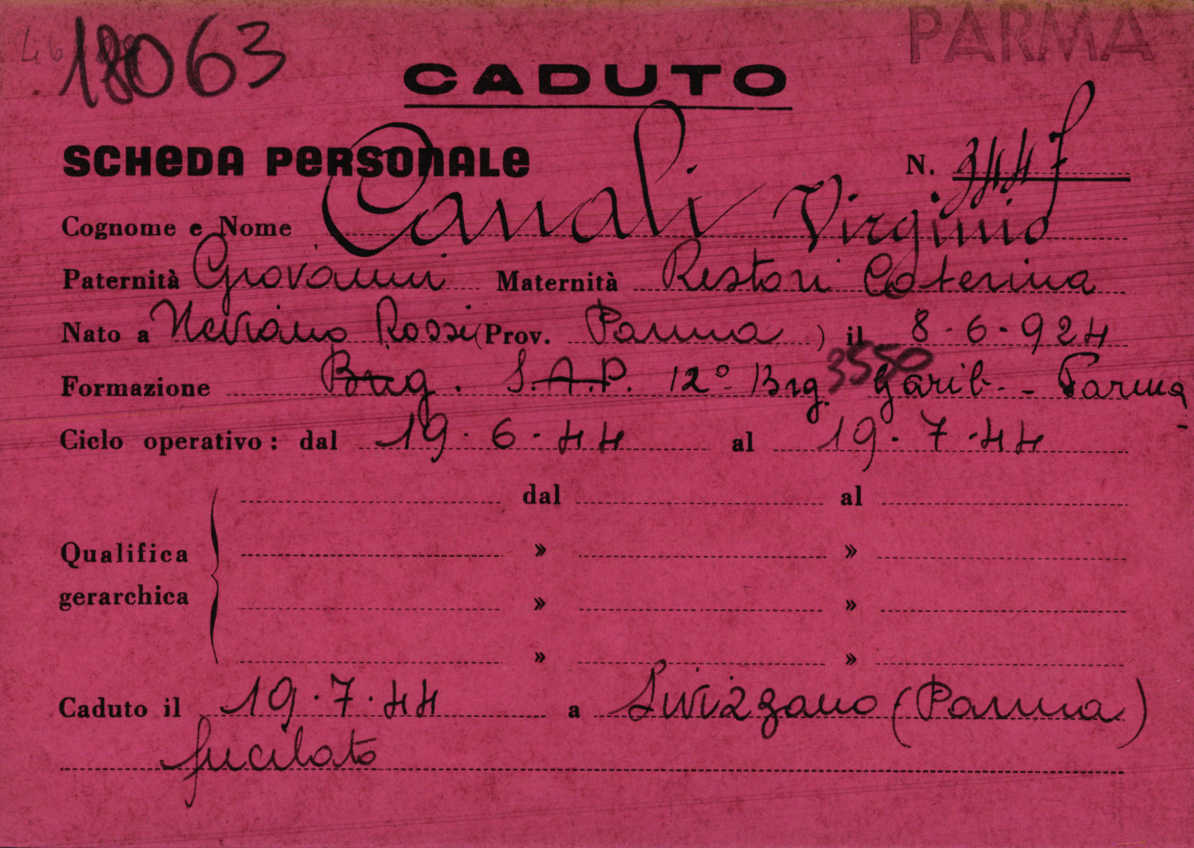 18063 PARMA
CADUTO
SCHEDA PERSONALE N. 3447
Cognome e Nome Canali Virginio
Paternità Giovanni Maternità Restori Caterina
Nato a Neviano Rossi (Prov. Parma) il 8-6-924
Formazione Brig. S.A.P. 12° Brg. 3550 Garib. - Parma -
Ciclo operativo: dal 19-6-44 al 19-7-44
dal al
Qualifica gerarchica » »
» »
» »
Caduto il 19-7-44 a Sivizzano (Parma)
fucilato